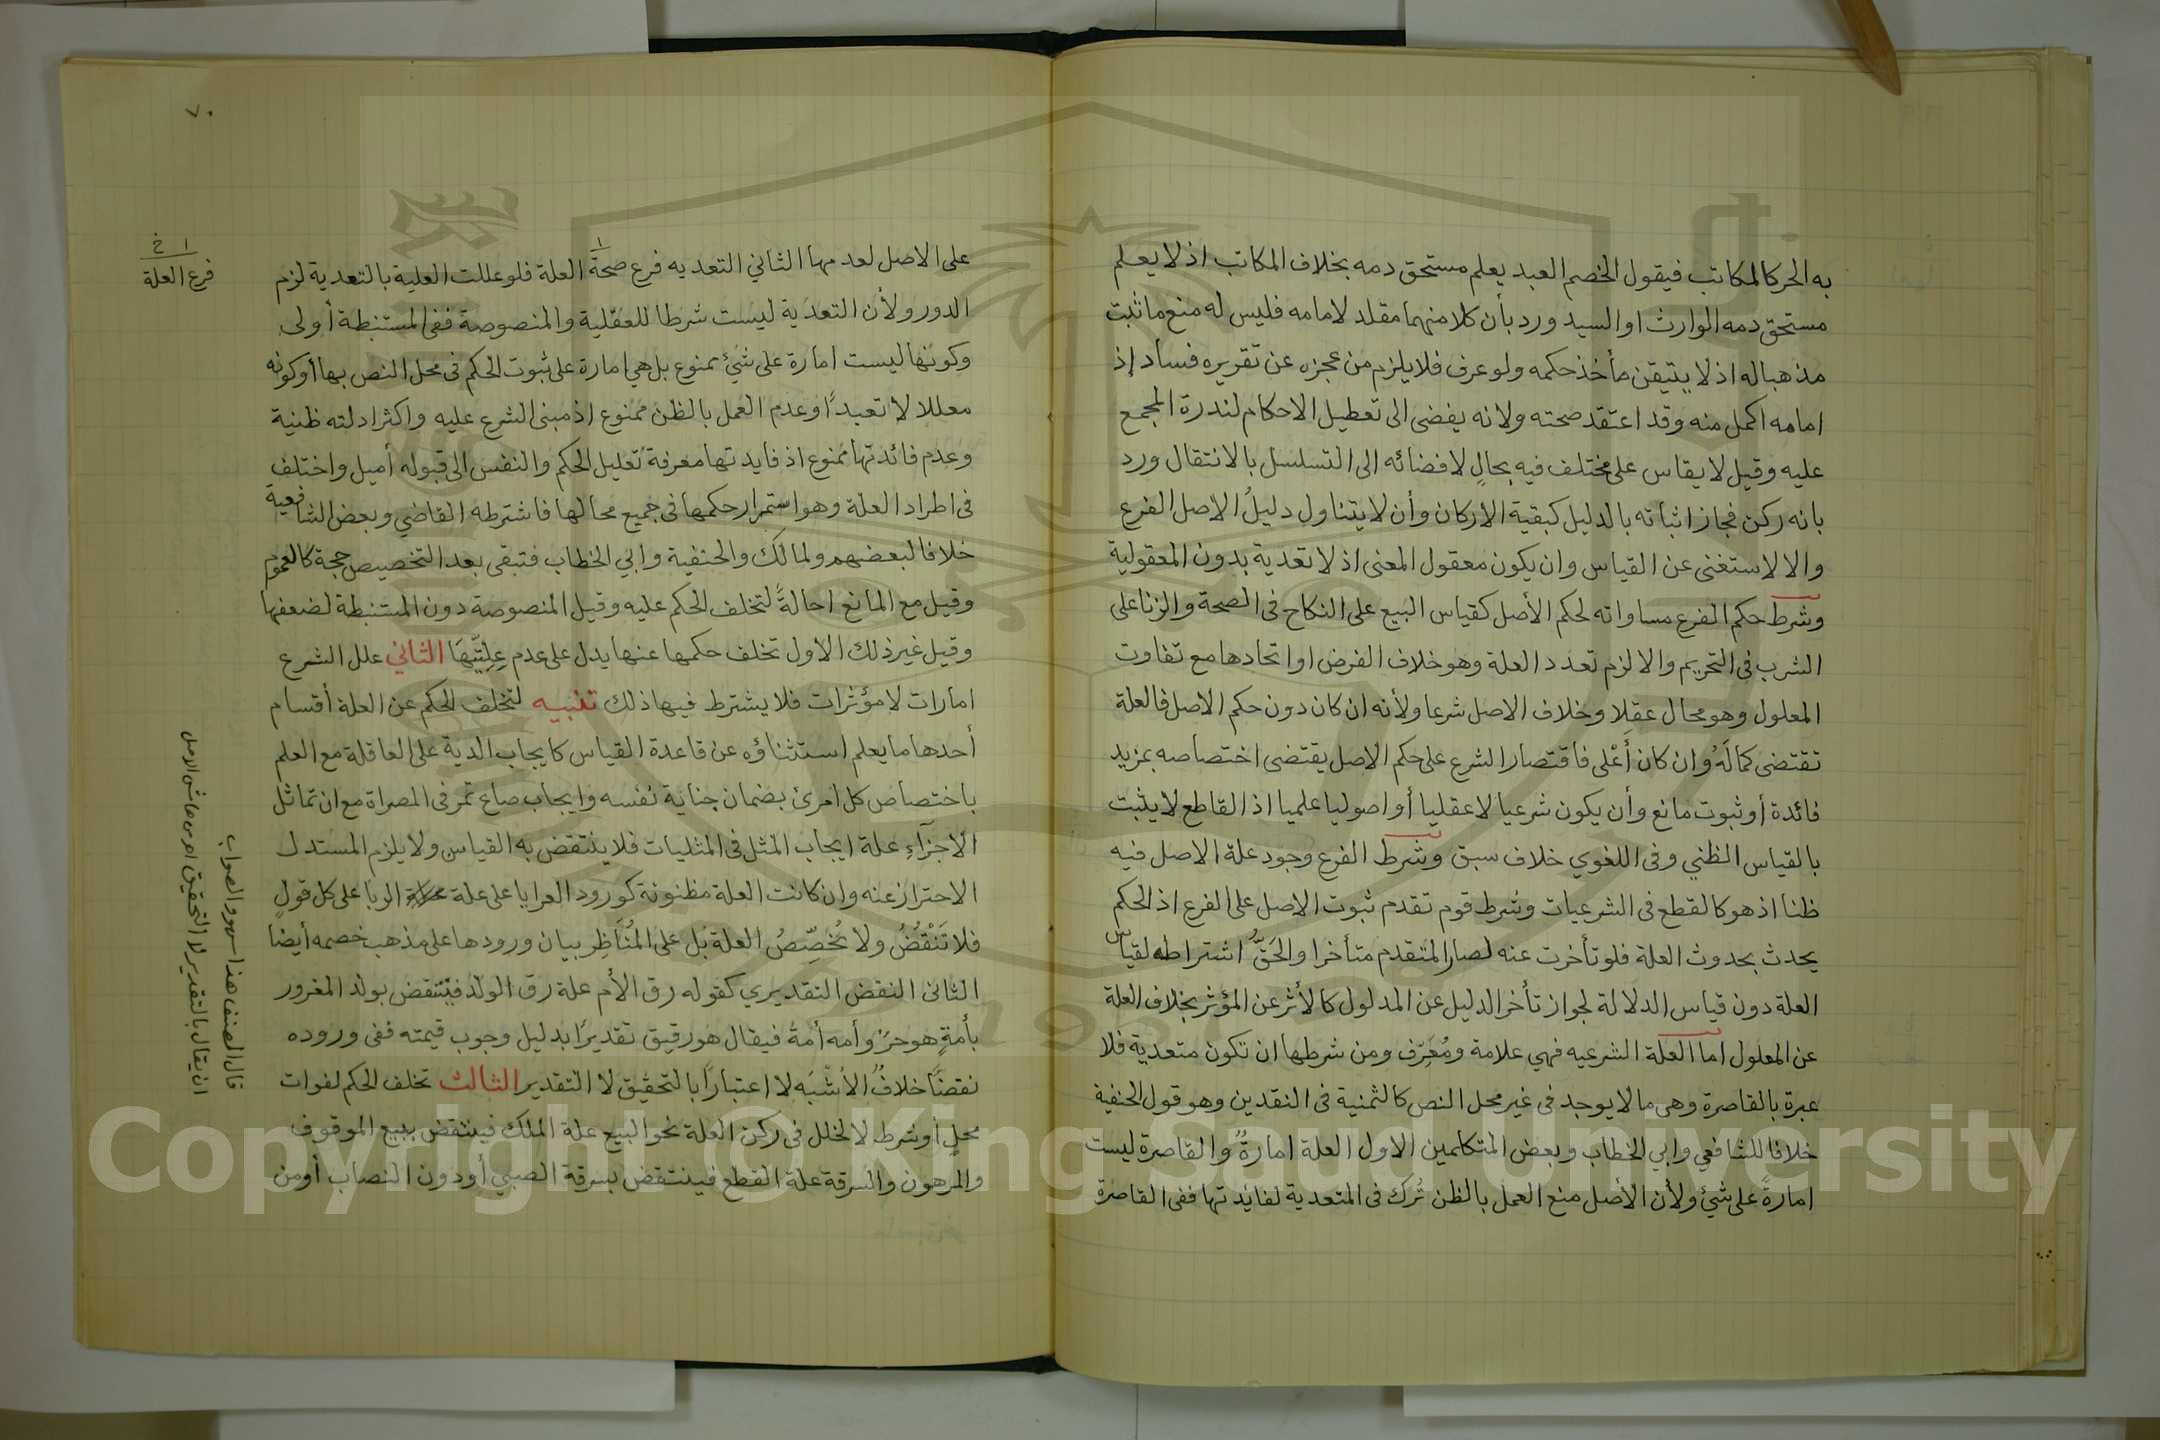 به الحر كالمكاتب فيقول الخصم العبد يعلم مستحق دمه بخلاف المكاتب اذ لا يعلم
مستحق دمه الوارث او السيد ورد بأن كلا منهما مقلد لامامه فليس له منع ما ثبت
مذهبا له اذ لا يتيقن مأخذ حكمه ولو عرف فلا يلزم من عجزه عن تقريره فساد إذ
امامه اكمل منه وقد اعتقد صحته ولانه يفضى الى تعطيل الاحكام لندرة المجمع
عليه وقيل لا يقاس على مختلف فيه بحالٍ لافضائه الى التسلسل بالانتقال ورد
بانه ركن فجاز اثباته بالدليل كبقية الاركان وأن لا يتناول دليلُ الاصل الفرع
والا لاستغنى عن القياس وان يكون معقول المعنى اذ لا تعدية بدون المعقولية
وشرط حكم الفرع مساواته لحكم الأصل كقياس البيع على النكاح فى الصحة والزنا على
الشرب فى التحريم والا لزم تعدد العلة وهو خلاف الفرض او اتحادها مع تفاوت
المعلول وهو محال عقلا وخلاف الاصل شرعا ولأنه ان كان دون حكم الاصل فالعلة
تقتضى كمالَهُ وان كان أعْلى فاقتصار الشرع على حكم الاصل يقتضى اختصاصه بمزيد
فائدة أو ثبوت مانع وأن يكون شرعيا لا عقليا أو اصوليا علميا اذ القاطع لا يثبت
بالقياس الظني وفى اللغوي خلاف سبق وشرط الفرع وجود علة الاصل فيه
ظنا اذ هو كالقطع فى الشرعيات وشرط قوم تقدم ثبوت الاصل على الفرع اذ الحكم
يحدث بحدوث العلة فلو تأخرت عنه لصار المتقدم متأخرا والحَقُّ اشتراطه لقياس
العلة دون قياس الدلالة لجواز تأخر الدليل عن المدلول كالأثر عن المؤثر بخلاف العلة
عن المعلول اما العلة الشرعيه فهي علامة ومُعَرِّف ومن شرطها ان تكون متعدية فلا
عبرة بالقاصرة وهى ما لا يوجد فى غير محل النص كالثمنية فى النقدين وهو قول الحنفية
خلافا للشافعي وابي الخطاب وبعض المتكلمين الاول العلة امارةٌ والقاصرة ليست
امارةً على شئ ولأن الأصل منع العمل بالظن تُرك فى المتعدية لفايدتها ففى القاصرة
٧٠
على الاصل لعدمها الثاني التعديه فرع صحة العلة فلو عللت العلية بالتعدية لزم
ا
ا خ
فرع العلة
الدور ولأن التعدية ليست شرطا للعقلية والمنصوصة ففى المستنبطة أولى
وكونها ليست امارة على شئ ممنوع بل هي امارة على ثبوت الحكم فى محل النص بها أو كونه
معللا لا تعبداً وعدم العمل بالظن ممنوع اذ مبنى الشرع عليه واكثر ادلته ظنية
وعدم فائدتها ممنوع اذ فايدتها معرفة تعليل الحكم والنفس الى قبوله أميل واختلف
فى اطراد العلة وهو استمرار حكمها فى جميع محالها فاشترطه القاضي وبعض الشافعية
خلافا لبعضهم ولمالك والحنفية وابي الخطاب فتبقى بعد التخصيص حجة كالعموم
وقيل مع المانع احالةً لتخلف الحكم عليه وقيل المنصوصة دون المستنبطة لضعفها
وقيل غير ذلك الاول تخلف حكمها عنها يدل على عدم عِلِيّتِهَا الثاني علل الشرع
امارات لا مؤثرات فلا يشترط فيها ذلك تنبيه لتخلف الحكم عن العلة أقسام
أحدها ما يعلم استثناؤه عن قاعدة القياس كايجاب الدية على العاقلة مع العلم
باختصاص كل امرئ بضمان جناية نفسه وايجاب صاع تمر فى المصراة مع ان تماثل
الاجزآء علة ايجاب المثل فى المثليات فلا ينتقض به القياس ولا يلزم المستدل
الاحتراز عنه وان كانت العلة مظنونة كورود العرايا على علة الربا على كل قول
فلا تَنْقُضُ ولا تُخصِّصُ العلة بل على المُنَاظِر بيان ورودها على مذهب خصمه أيضا
الثانى النقض التقديري كقوله رق الأم علة رق الولد فينتقض بولد المغرور
بأمةٍ هو حرٌ وأمه أمةٌ فيقال هو رقيق تقديرًا بدليل وجوب قيمته ففى وروده
نقضًا خلافٌ الأشْبَه لا اعتبارًا بالتحقيق لا التقدير الثالث تخلف الحكم لفوات
محلٍ أو شرط لا لخلل فى ركن العلة نحو البيع علة الملك فينتقض ببيع الموقوف
والمرهون والسرقة علة القطع فينتقض بسرقة الصبي أو دون النصاب أو من
قال المصنف هذا سهو والصواب
ان يقال بالتقدير لا التحقيق اهـ من هامش الاصل
Copyright © King Saud University